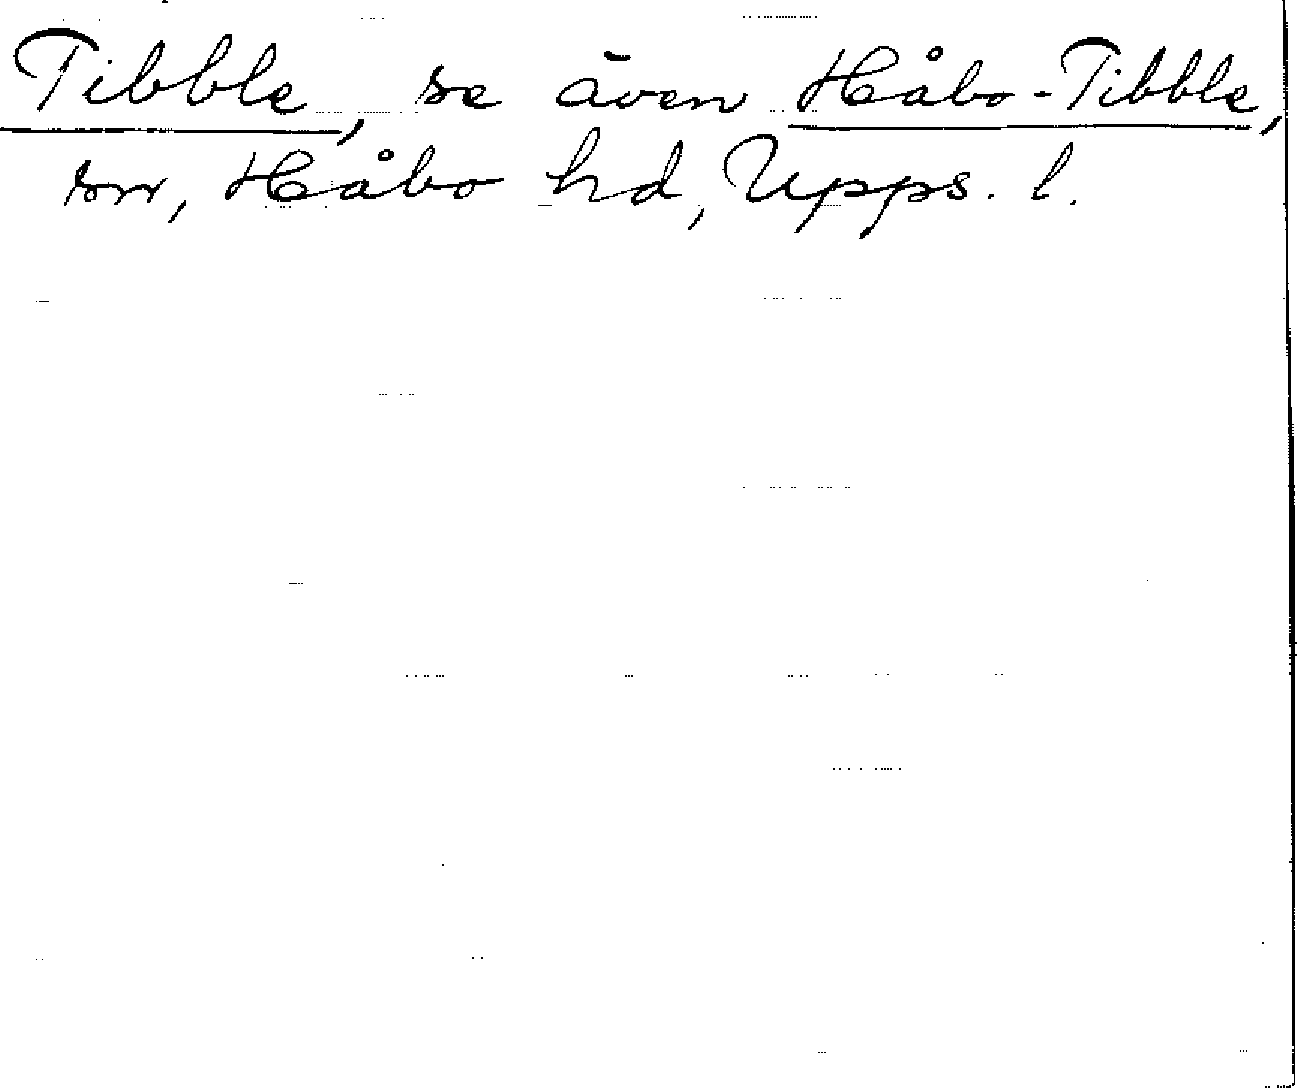 Tibble, se även Håbo-Tibble,
sn, Håbo hd, Upps. l.